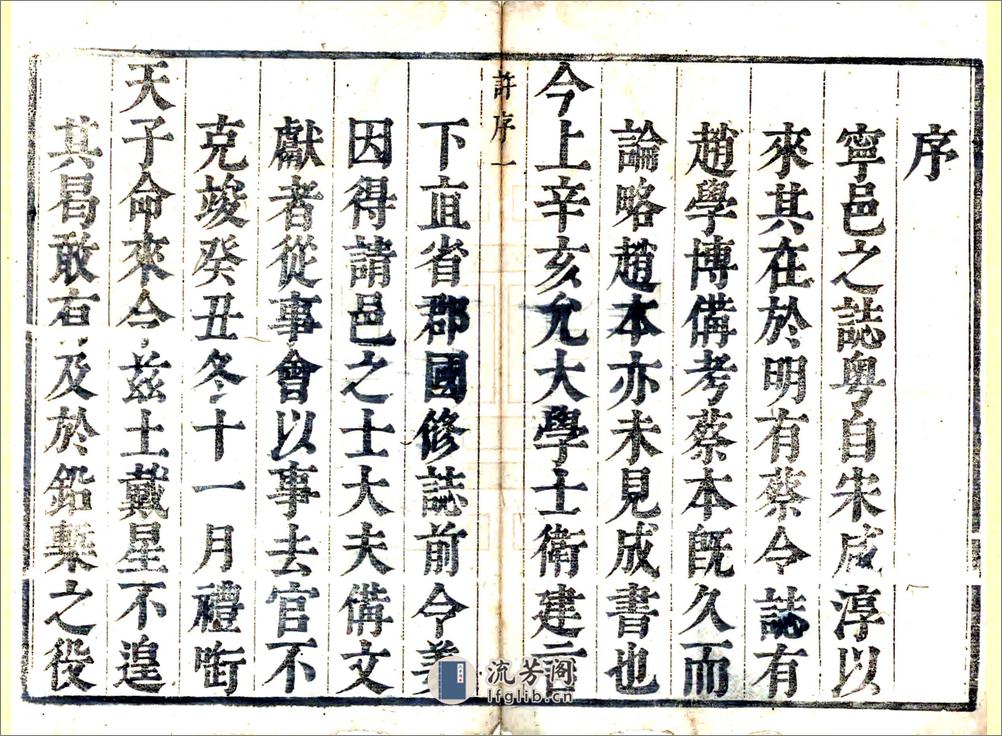 序
寧邑之誌粤自宋咸淳以
來其在於明有蔡令誌有
趙學博備考蔡本旣久而
論略趙本亦未見成書也
今上辛亥允大學士衛建
許序一
下直省郡國修誌前令
因得請邑之士大夫備文
獻者從事會以事去官不
克竣癸丑冬十一月禮銜
天子命來令茲土戴星不遑
其曷敢有及於鉛槧之役
流芳阁
lfglib.cn